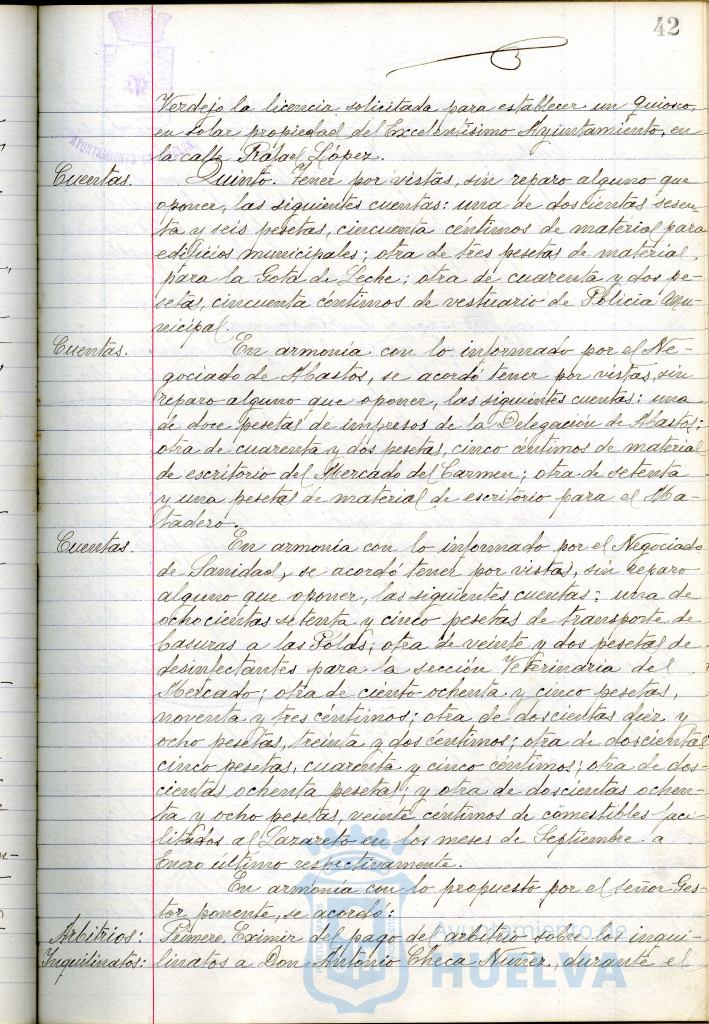 42
Verdejo la licencia solicitada para establecer un quiosco,
en solar propiedad del Excelentísimo Ayuntamiento, en
la calle Rafael López.
Cuentas. Quinto. Tener por vistas, sin reparo alguno que
oponer, las siguientes cuentas: una de doscientas sesen-
ta y seis pesetas, cincuenta céntimos de material para
edificios municipales; otra de tres pesetas de material,
para la Gota de Leche; otra de cuarenta y dos pe-
setas, cincuenta céntimos de vestuario de Policía Mu-
nicipal.
Cuentas. En armonía con lo informado por el Ne-
gociado de Abastos, se acordó tener por vistas, sin
reparo alguno que oponer, las siguientes cuentas: una
de doce pesetas de impresos de la Delegación de Abastos;
otra de cuarenta y dos pesetas, cinco céntimos de material
de escritorio del Mercado del Carmen; otra de setenta
y una pesetas de material de escritorio para el Ma-
tadero.
Cuentas. En armonía con lo informado por el Negociado
de Sanidad, se acordó tener por vistas, sin reparo
alguno que oponer, las siguientes cuentas: una de
ochocientas setenta y cinco pesetas de transporte de
basuras a las Polas; otra de veinte y dos pesetas de
desinfectantes para la sección Veterinaria del
Mercado; otra de ciento ochenta y cinco pesetas,
noventa y tres céntimos; otra de doscientas diez y
ocho pesetas, treinta y dos céntimos; otra de doscientas
cinco pesetas, cuarenta y cinco céntimos; otra de dos-
cientas ochenta pesetas; y otra de doscientas ochen-
ta y ocho pesetas, veinte céntimos de comestibles faci-
litados al Lazareto en los meses de Septiembre a
Enero último respectivamente.
En armonía con lo propuesto por el señor Ges-
tor ponente, se acordó:
Arbitrios: Primero. Eximir del pago del arbitrio sobre los inqui-
Inquilinatos: linatos a Don Antonio Checa Nuñez, durante el
Ayuntamiento de
HUELVA